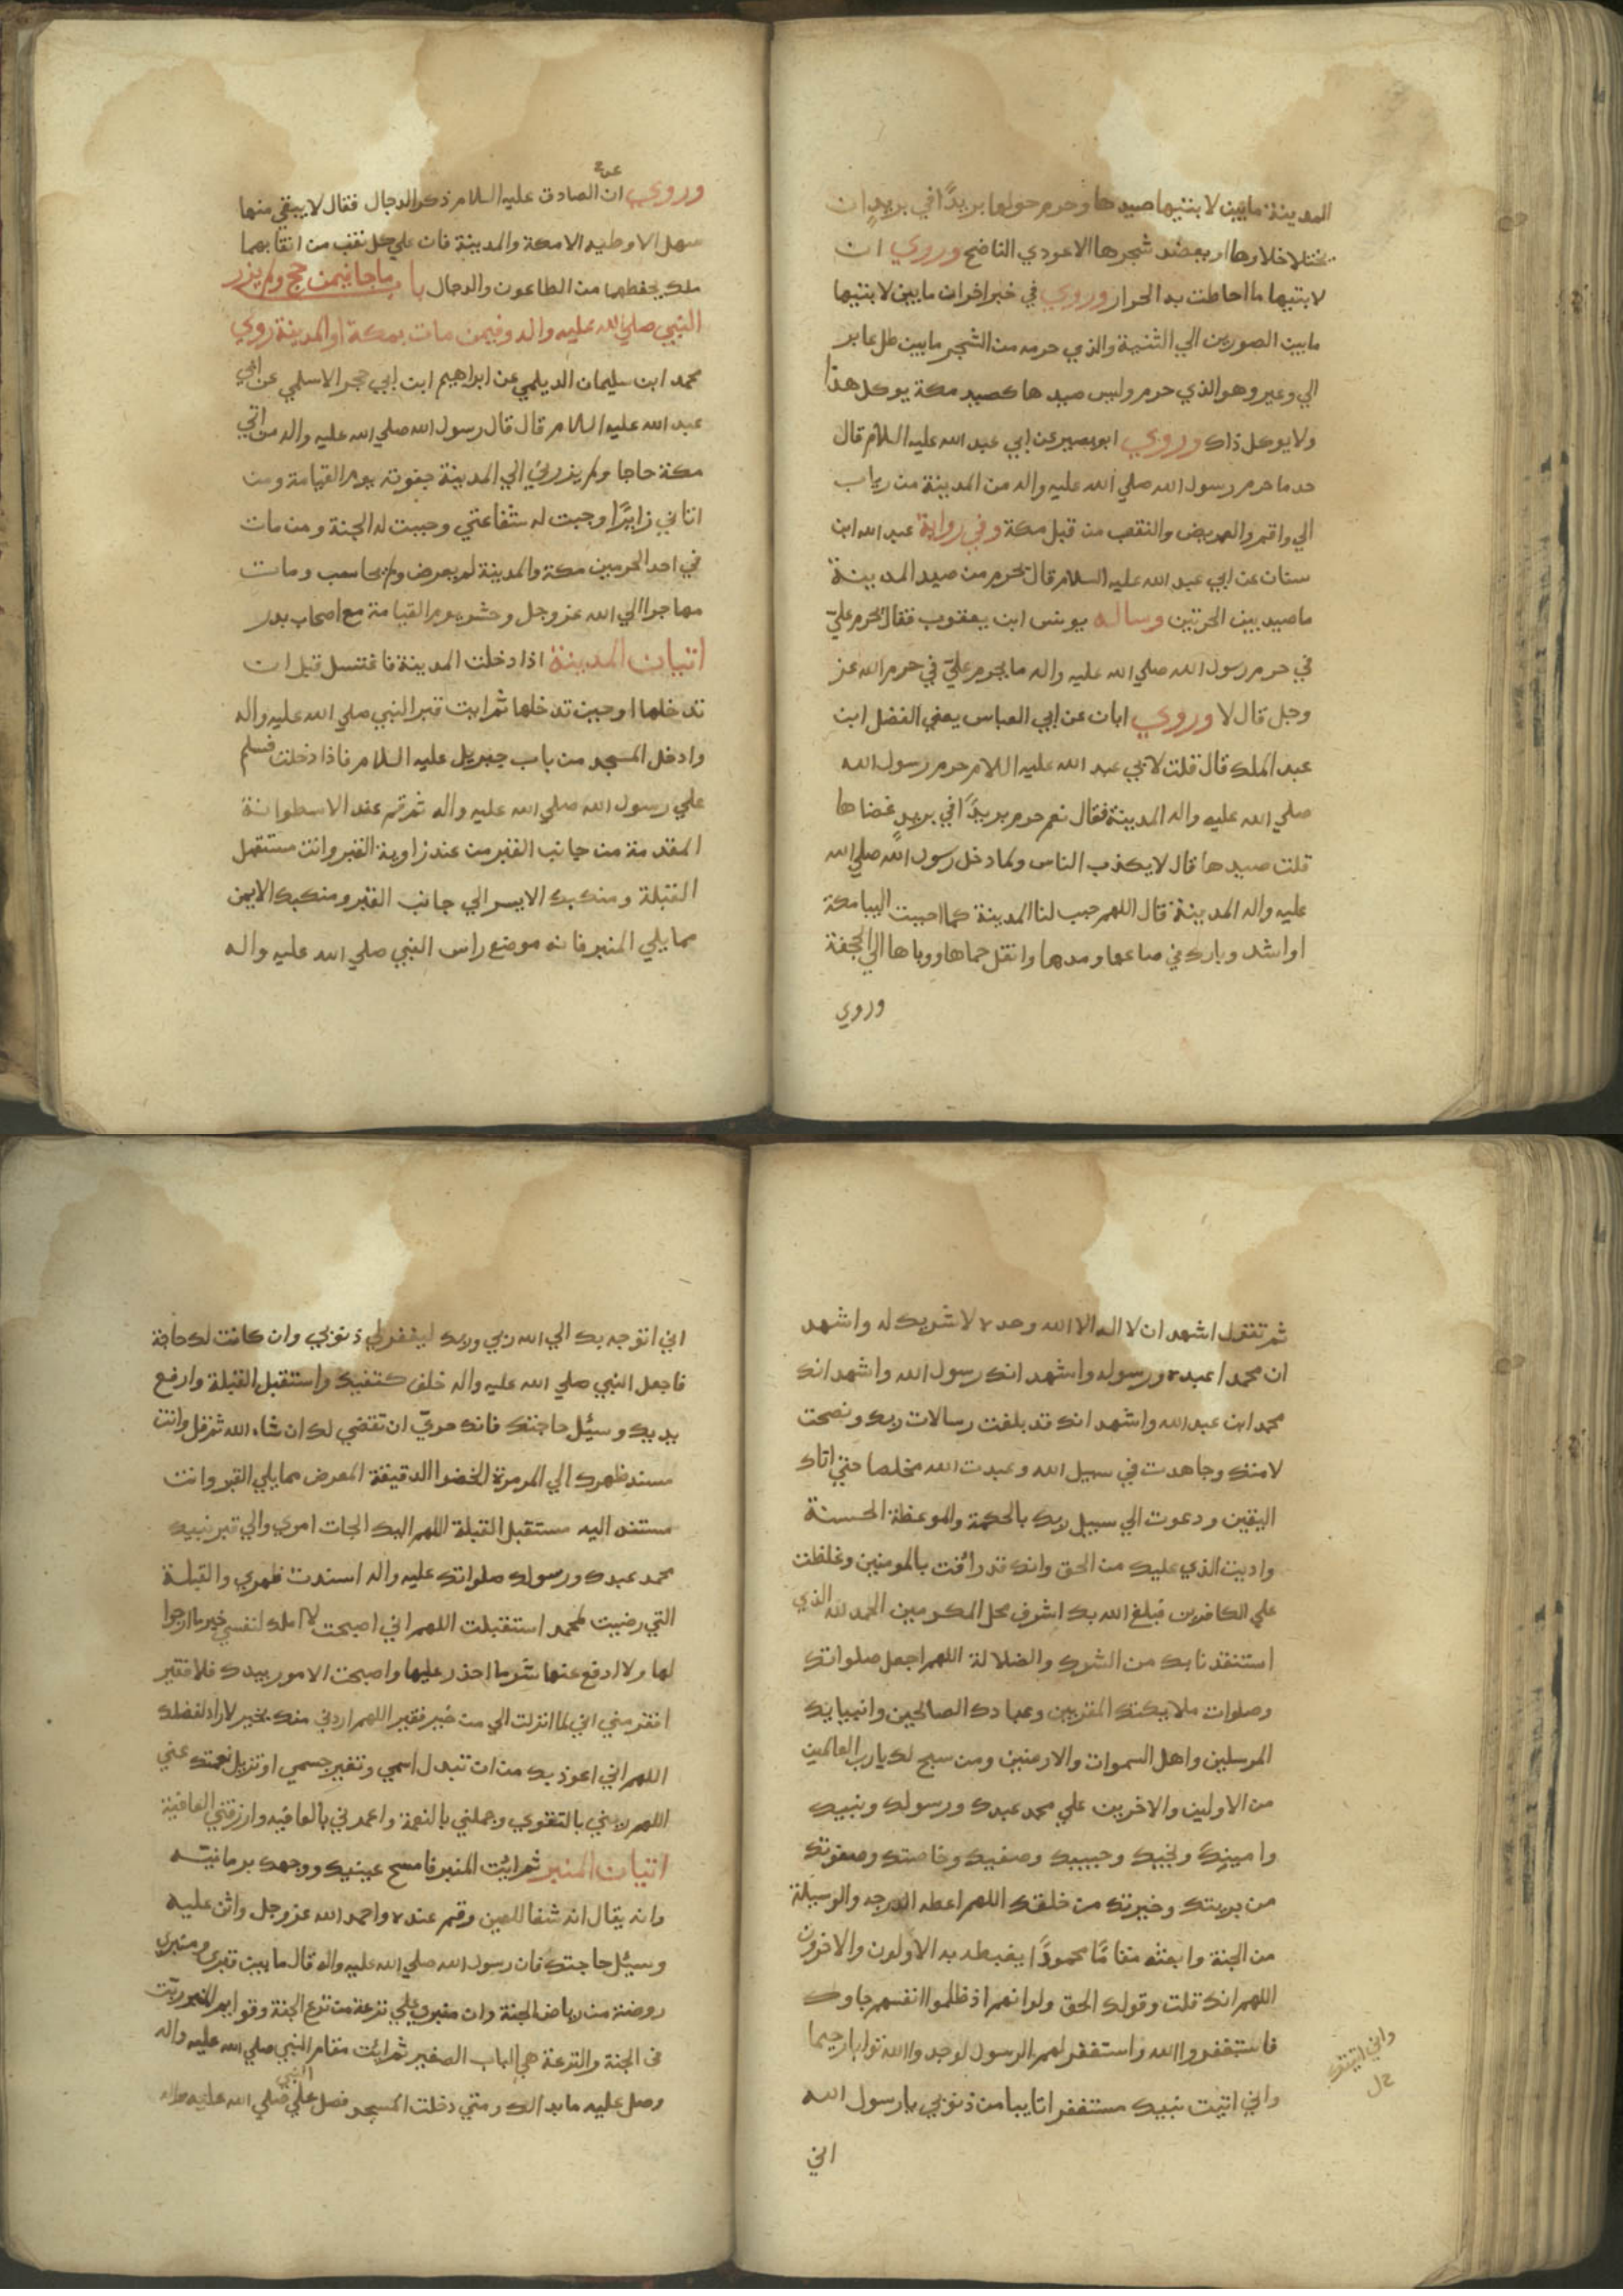 المدينة ما بين لابتيها صيدها وحرم حولها بريدًا في بريدٍ ان
يختلا خلاوها او يعضد شجرها الا عودي الناضح وروي ان
لابتيها ما احاطت به الحرار وروي في خبر اخر ان ما بين لابتيها
ما بين الصورين الي الثنية والذي حرمه من الشجر ما بين ظل عاير
الي وعير وهو الذي حرم وليس صيدها كصيد مكة يوكل هذا
ولا يوكل ذاك وروي ابو بصير عن ابي عبد الله عليه السلام قال
حد ما حرم رسول الله صلي الله عليه واله من المدينة من رباب
الي واقم والعريض والنقب من قبل مكة وفي رواية عبد الله ابن
سنان عن ابي عبد الله عليه السلام قال يحرم من صيد المدينة
ما صيد بين الحرتين وساله يونس ابن يعقوب فقال يحرم عليّ
في حرم رسول الله صلي الله عليه واله ما يحرم عليّ في حرم الله عز
وجل قال لا وروي ابان عن ابي العباس يعني الفضل ابن
عبد الملك قال قلت لابي عبد الله عليه السلام حرم رسول الله
صلي الله عليه واله المدينة فقال نعم حرم بريدًا في بريدٍ غضاها
قلت صيدها قال لا يكذب الناس ولما دخل رسول الله صلي الله
عليه واله المدينة قال اللهم حبب لنا المدينة كما احببت الينا مكة
او اشد وبارك في صاعها ومدها وانقل حماها ووباها الي الجحفة
وروي
وروي ان الصادق عليه السلام ذكر الدجال فقال لا يبقي منها
سهل الا وطيه الا مكة والمدينة فان علي كل نقب من انقابهما
ملك يحفظهما من الطاعون والدجال باب ما جا فيمن حج ولم يزر
النبي صلي الله عليه واله وفيمن مات بمكة او المدينة روي
محمد ابن سليمان الديلمي عن ابراهيم ابن ابي حجر الاسلمي عن ابي
عبد الله عليه السلام قال قال رسول الله صلي الله عليه واله من اتي
مكة حاجا ولم يزرني الي المدينة جفوته يوم القيامة ومن
اتاني زايرًا وجبت له شفاعتي وجبت له الجنة ومن مات
في احد الحرمين مكة والمدينة لم يعرض ولم يحاسب ومات
مهاجرا الي الله عز وجل وحشر يوم القيامة مع اصحاب بدر
اتيان المدينة اذا دخلت المدينة فاغتسل قبل ان
تدخلها او حين تدخلها ثم ايت قبر النبي صلي الله عليه واله
وادخل المسجد من باب جبريل عليه السلام فاذا دخلت فسلم
علي رسول الله صلي الله عليه واله ثم قم عند الاسطوانة
المقدمة من جانب القبر من عند زاوية القبر وانت مستقبل
القبلة ومنكبك الايسر الي جانب القبر ومنكبك الايمن
مما يلي المنبر فانه موضع راس النبي صلي الله عليه واله
ثم تقول اشهد ان لا اله الا الله وحده لا شريك له واشهد
ان محمدا عبده ورسوله واشهد انك رسول الله واشهد انك
محمد ابن عبد الله واشهد انك قد بلغت رسالات ربك ونصحت
لامتك وجاهدت في سبيل الله وعبدت الله مخلصا حتي اتاك
اليقين ودعوت الي سبيل ربك بالحكمة والموعظة الحسنة
واديت الذي عليك من الحق وانك قد رافت بالمومنين وغلظت
علي الكافرين فبلغ الله بك اشرف محل المكرمين الحمد لله الذي
استنقذنا بك من الشرك والضلالة اللهم اجعل صلواتك
وصلوات ملايكتك المقربين وعبادك الصالحين وانبيايك
المرسلين واهل السموات والارضين ومن سبح لك يا رب العالمين
من الاولين والاخرين علي محمد عبدك ورسولك ونبيك
وامينك ونجيك وحبيبك وصفيك وخاصتك وصفوتك
من بريتك وخيرتك من خلقك اللهم اعطه الدرجه والوسيلة
من الجنة وابعثه مقامًا محمودًا يغبطه به الاولون والاخرون
اللهم انك قلت وقولك الحق ولو انهم اذ ظلموا انفسهم جاوك
فاستغفروا الله واستغفر لهم الرسول لوجدوا الله توابا رحيما
واني اتيت نبيك مستغفرا تايبا من ذنوبي يا رسول الله
اني
واني اتيتك
اني اتوجه بك الي الله ربي وربك ليغفر لي ذنوبي وان كانت لك حاجة
فاجعل النبي صلي الله عليه واله خلف كتفيك واستقبل القبلة وارفع
يديك وسيل حاجتك فانك حريّ ان تقضي لك ان شاء الله ثم قل وانت
مسند ظهرك الي المرمرة الخضرا الدقيقة المعرض مما يلي القبر وانت
مستند اليه مستقبل القبلة اللهم اليك الجات امري والي قبر نبيك
محمد عبدك ورسولك صلواتك عليه واله اسندت ظهري والقبلة
التي رضيت لمحمد استقبلت اللهم اني اصبحت لا املك لنفسي خير ما ارجوا
لها ولا ادفع عنها شر ما احذر عليها واصبحت الامور بيدك فلا فقير
افقر مني اني لما انزلت الي من خير فقير اللهم اردني منك بخير لا راد لفضلك
اللهم اني اعوذ بك من ان تبدل اسمي وتغير جسمي او تزيل نعمتك عني
اللهم زيني بالتقوي وجملني بالنعمة واعمرني بالعافيه وارزقني العافية
اتيان المنبر ثم ايت المنبر فامسح عينيك ووجهك برمانيته
وانه يقال انه شفا للعين وقم عنده واحمد الله عز وجل واثن عليه
وسيل حاجتك فان رسول الله صلي الله عليه واله قال ما بين قبري ومنبري
روضة من رياض الجنة وان منبري علي ترعة من ترع الجنة وقوايم المنبر ربت
في الجنة والترعة هي الباب الصغير ثم ايت مقام النبي صلي الله عليه واله
وصل عليه ما بدا لك ومتي دخلت المسجد فصل علي النبي صلي الله عليه واله